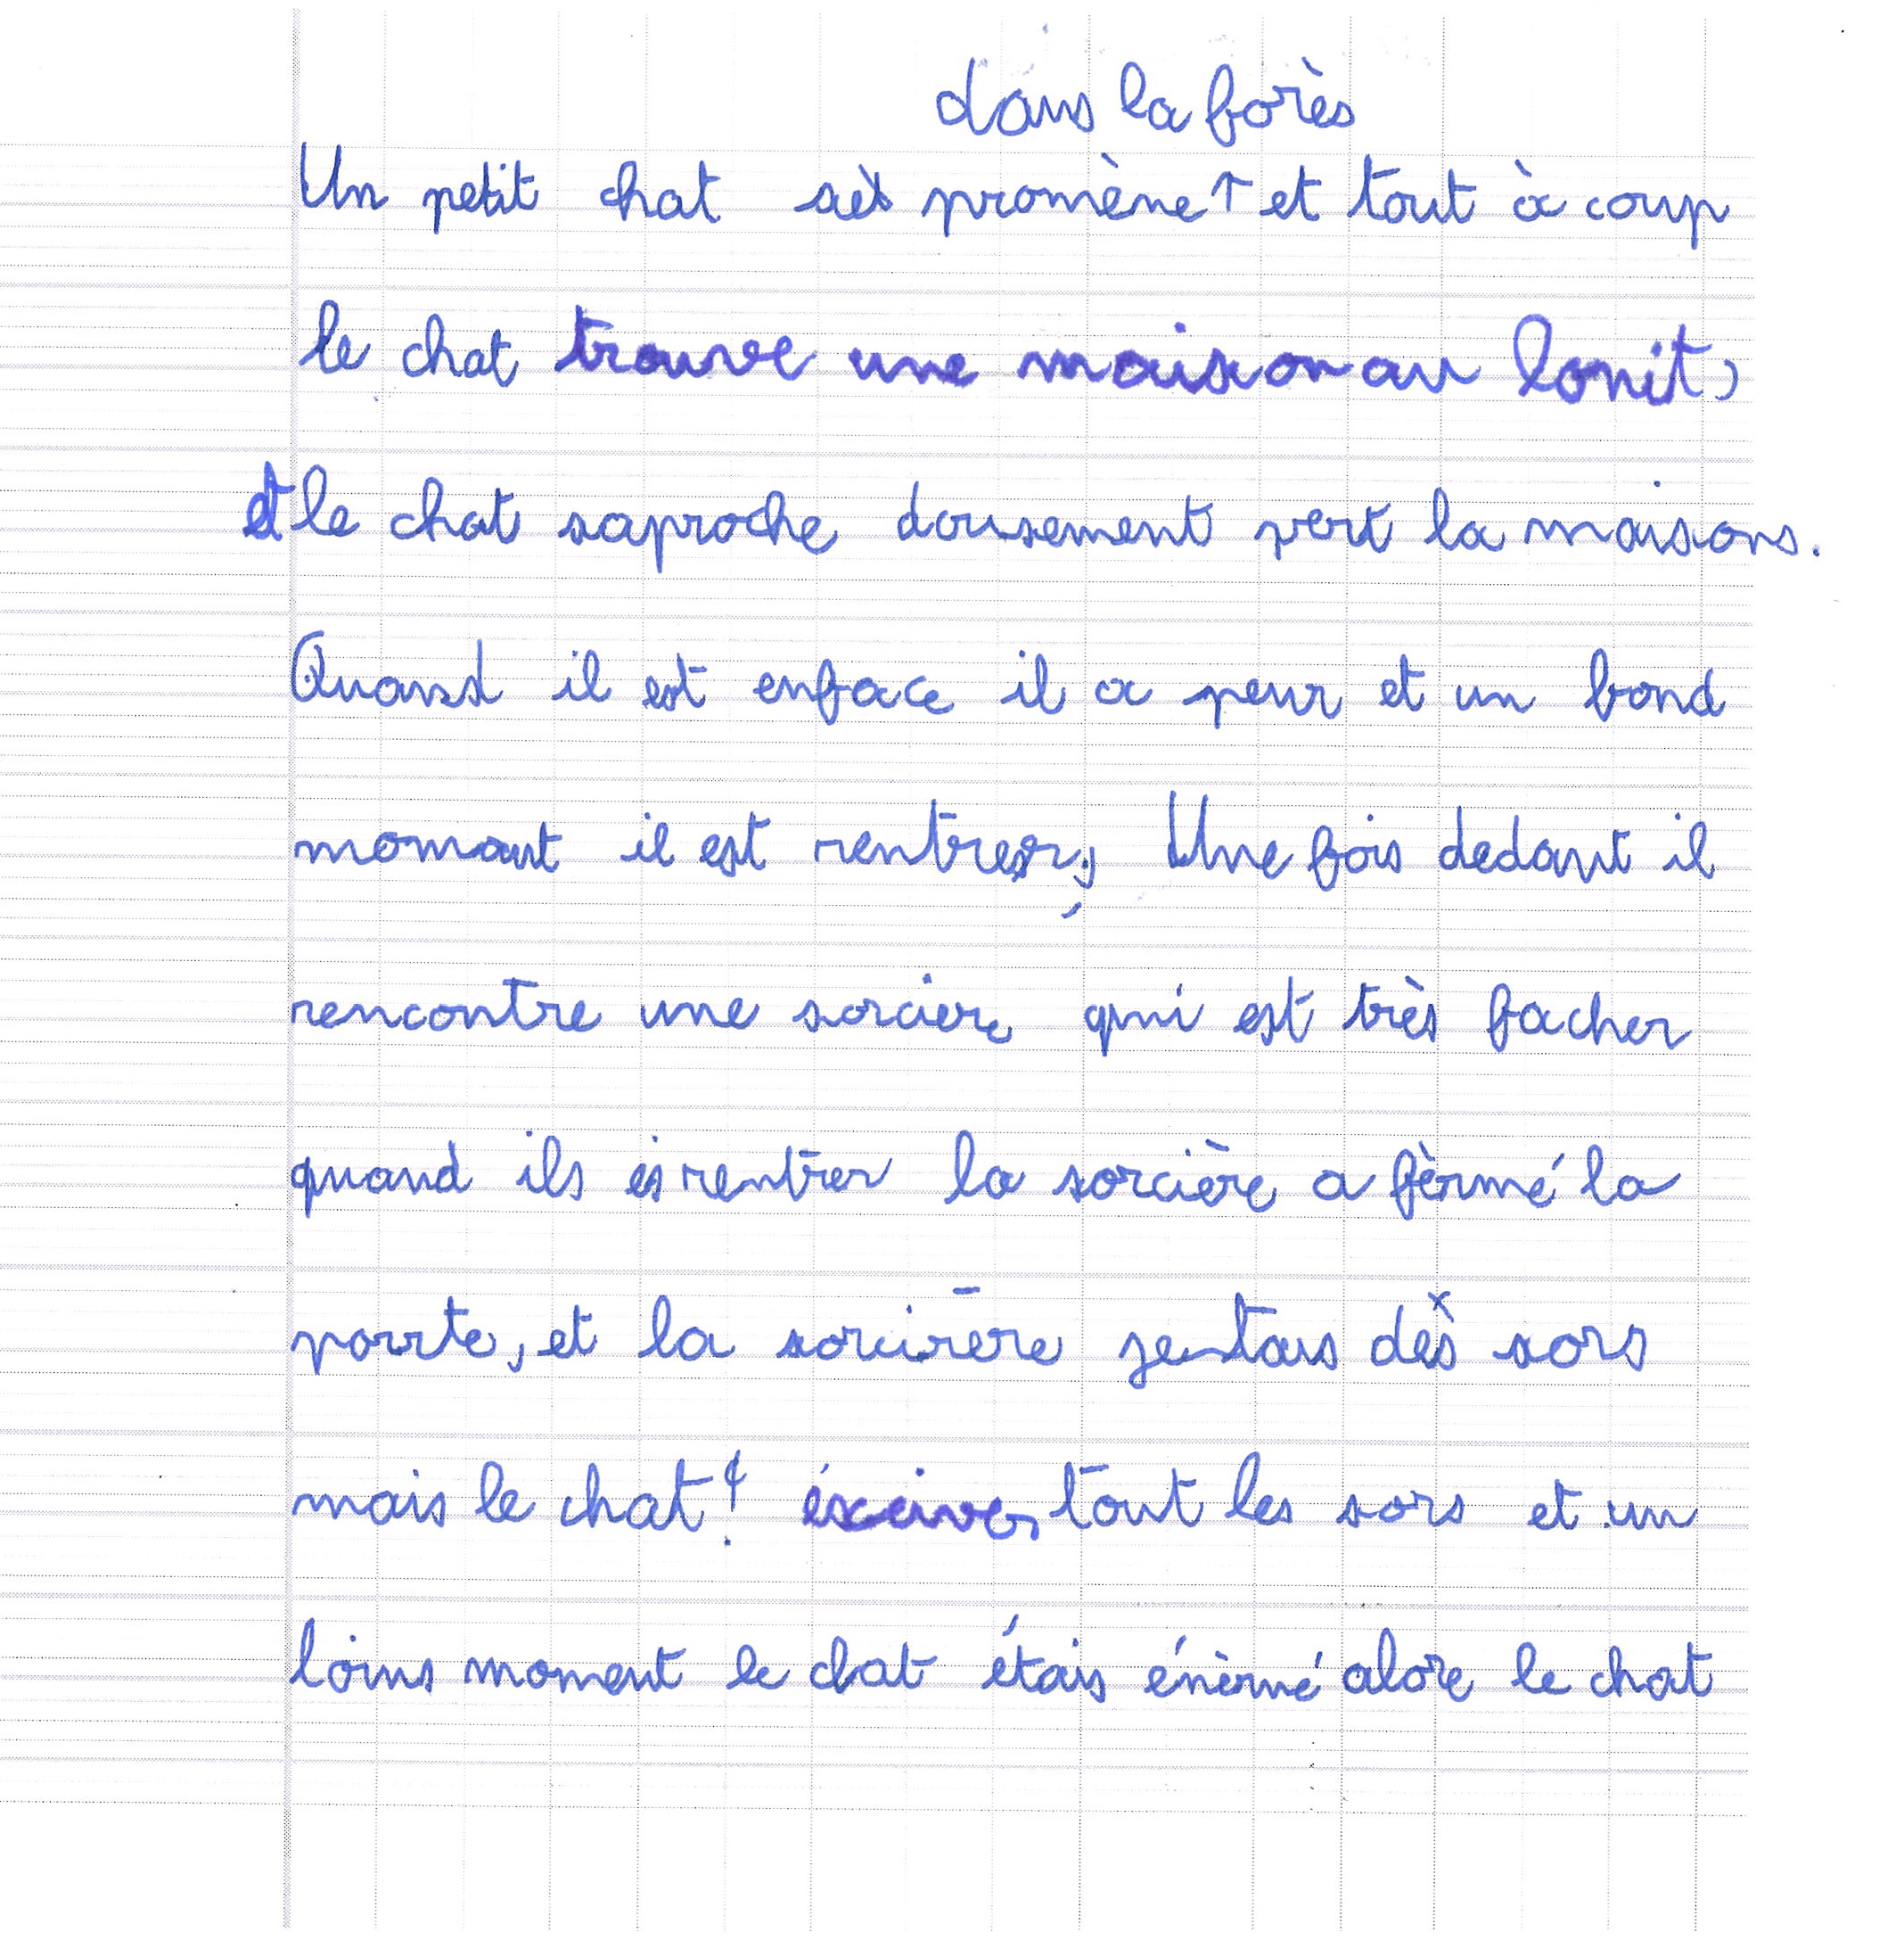 dans la forès
Un petit chat sès promène↑ et tout à coup
le chat trouve une maison au lonit,
et le chat saproche dousement vert la maisons.
Quand il est enface il a peur et un bond
momant il est rentrer, Une fois dedant il
rencontre une sorciere qui est très facher
quand ils es rentrer la sorcière a fèrmé la
porrte, et la sorcière jentais des sors
mais le chat! éxcives tout les sors et un
loins moment le chat étais énèrmé alore le chat